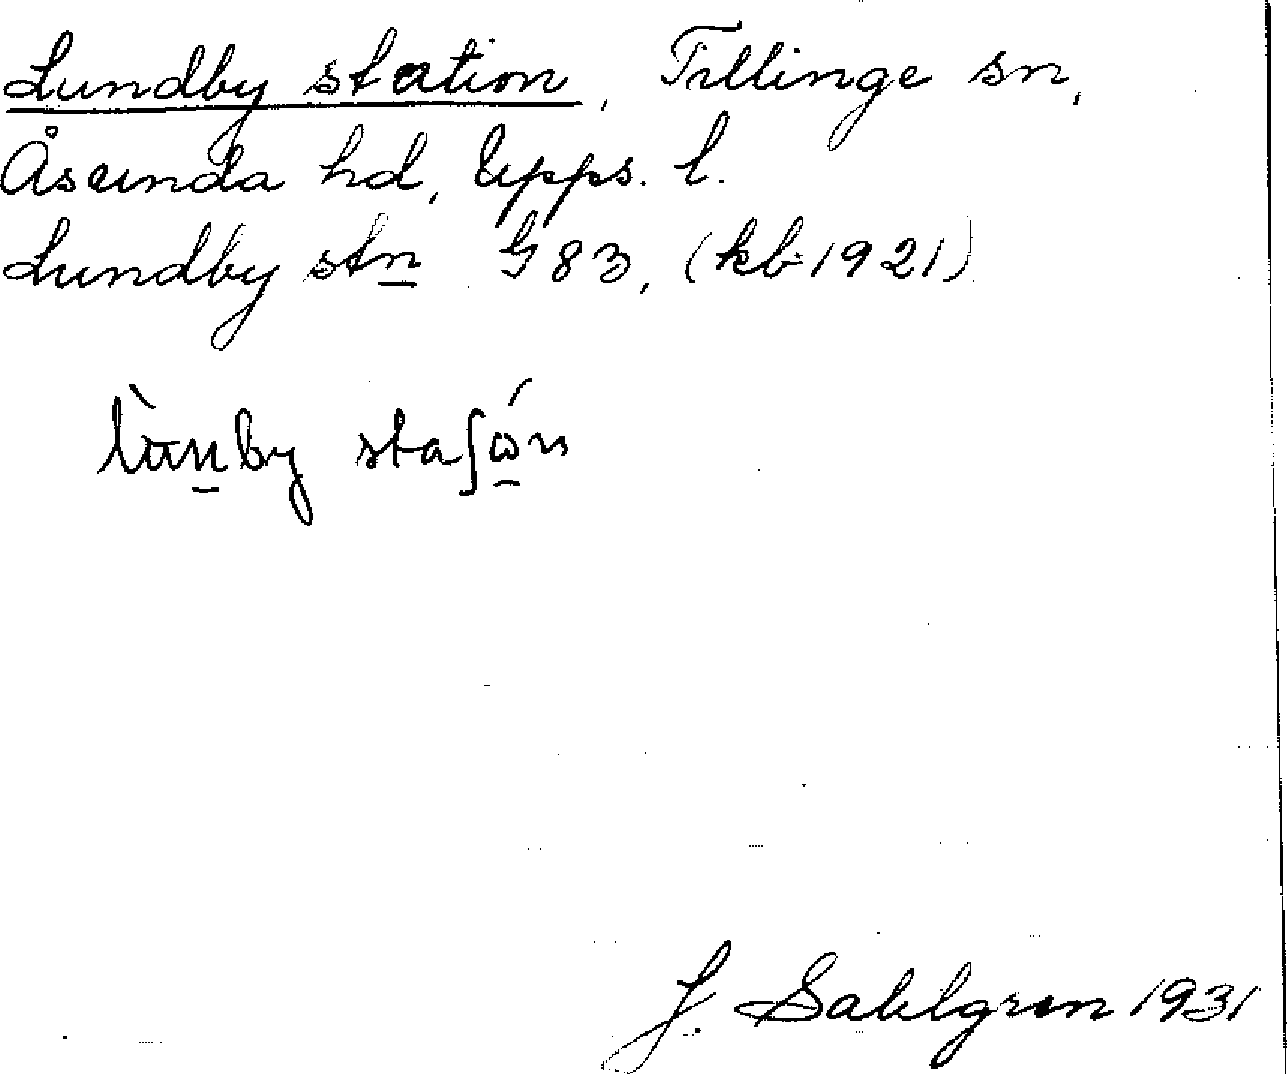 Lundby station, Tillinge sn,
Åsunda hd, Upps. l.
Lundby stn G 83, (kb 1921)
staʃώn
J. Sahlgren 1931